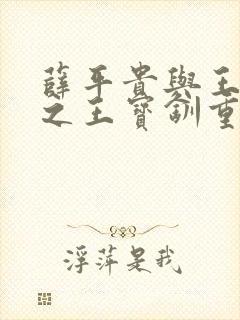 薛平貴與王
之王寶釧重
浮萍是我